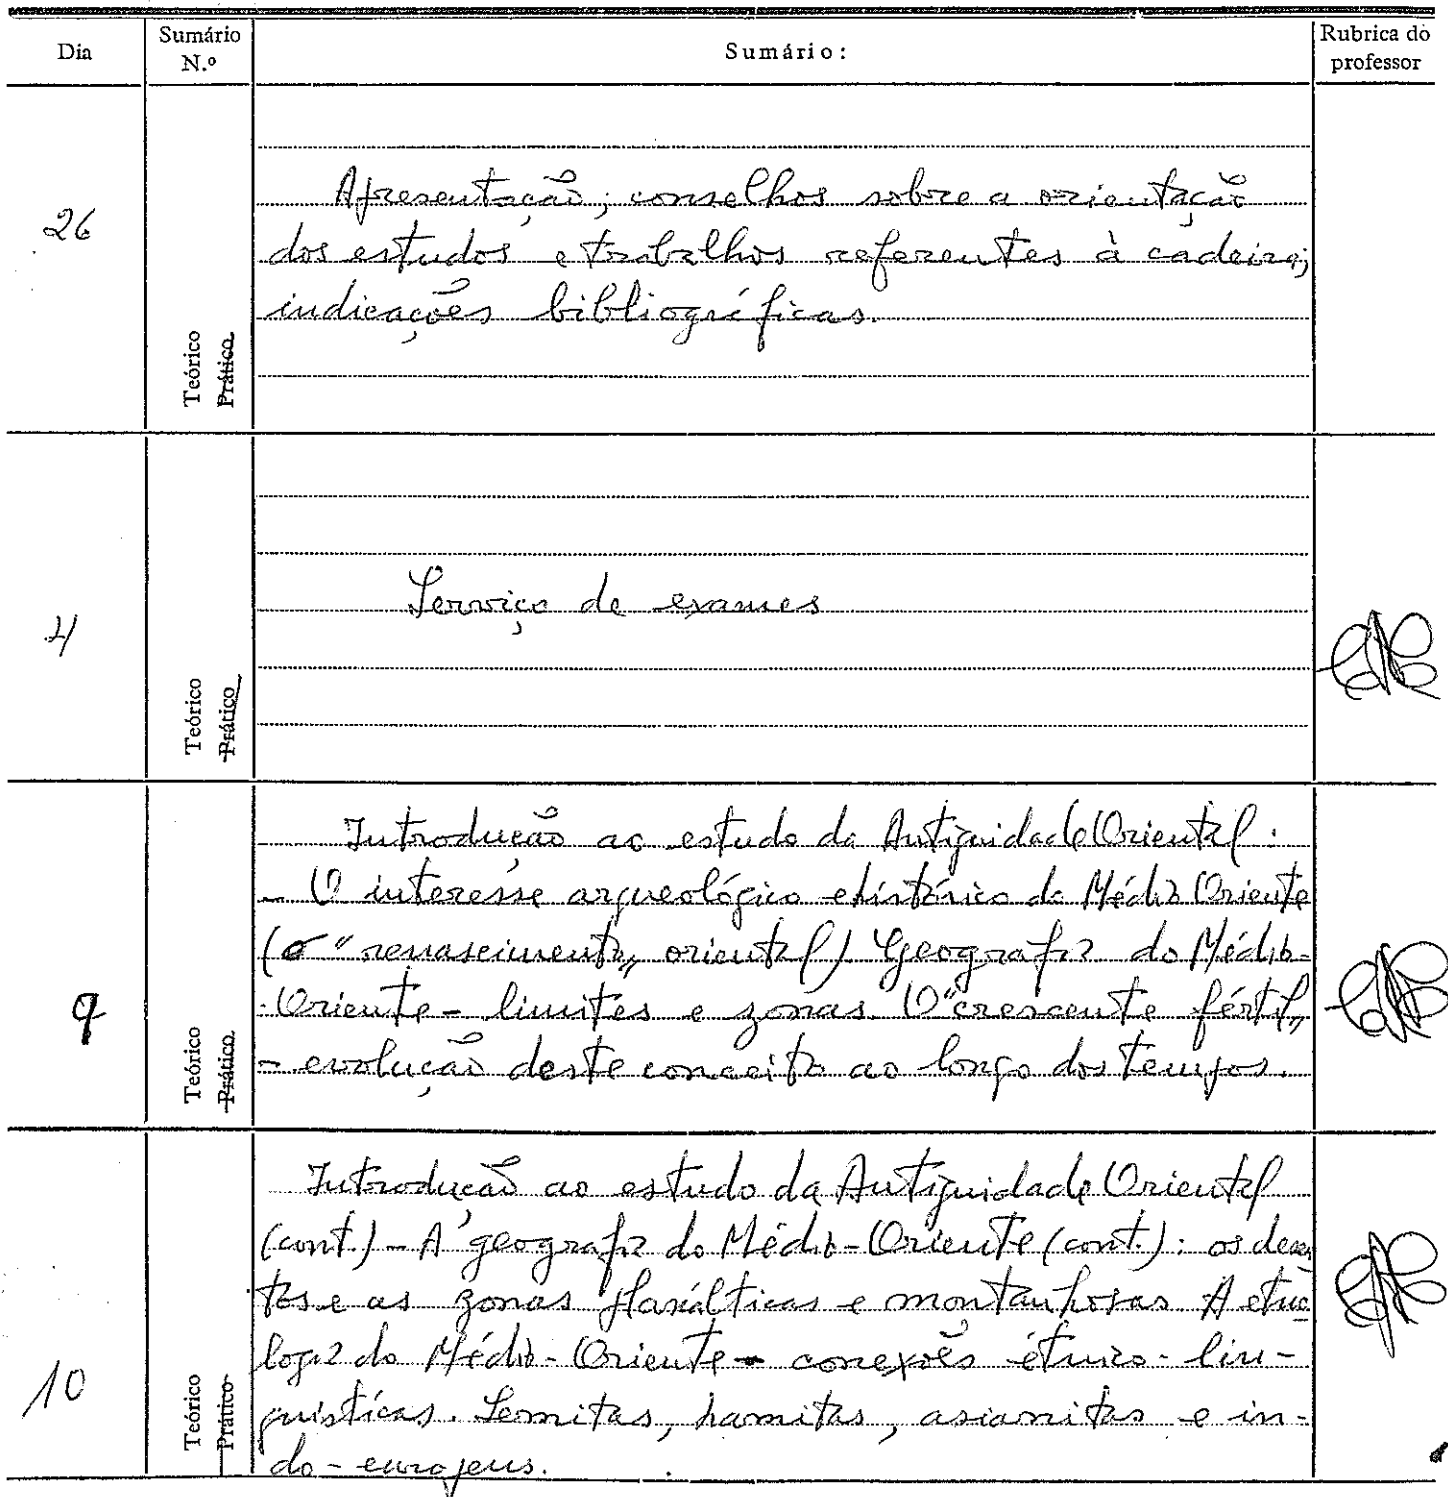 Dia
Sumário N.º
Sumário:
Rubrica do professor
26
Teórico
Prático
Apresentação; conselhos sobre a orientação
dos estudos e trabalhos referentes à cadeira;
indicações bibliográficas.
4
Teórico
Prático
Serviço de exames
9
Teórico
Prático
Introdução ao estudo da Antiguidade Oriental:
- O interesse arqueológico e histórico do Médio Oriente
(o "renascimento" oriental) Geografia do Médio-
-Oriente - limites e zonas. O "crescente fértil"
- evolução deste conceito ao longo dos tempos.
10
Teórico
Prático
Introdução ao estudo da Antiguidade Oriental
(cont.) - A geografia do Médio-Oriente (cont.): os deser
tos e as zonas planálticas e montanhosas A etno
logia do Médio-Oriente - conexões étnico-lin-
guísticas. Semitas, hamitas, asianitas e in-
do-europeus.